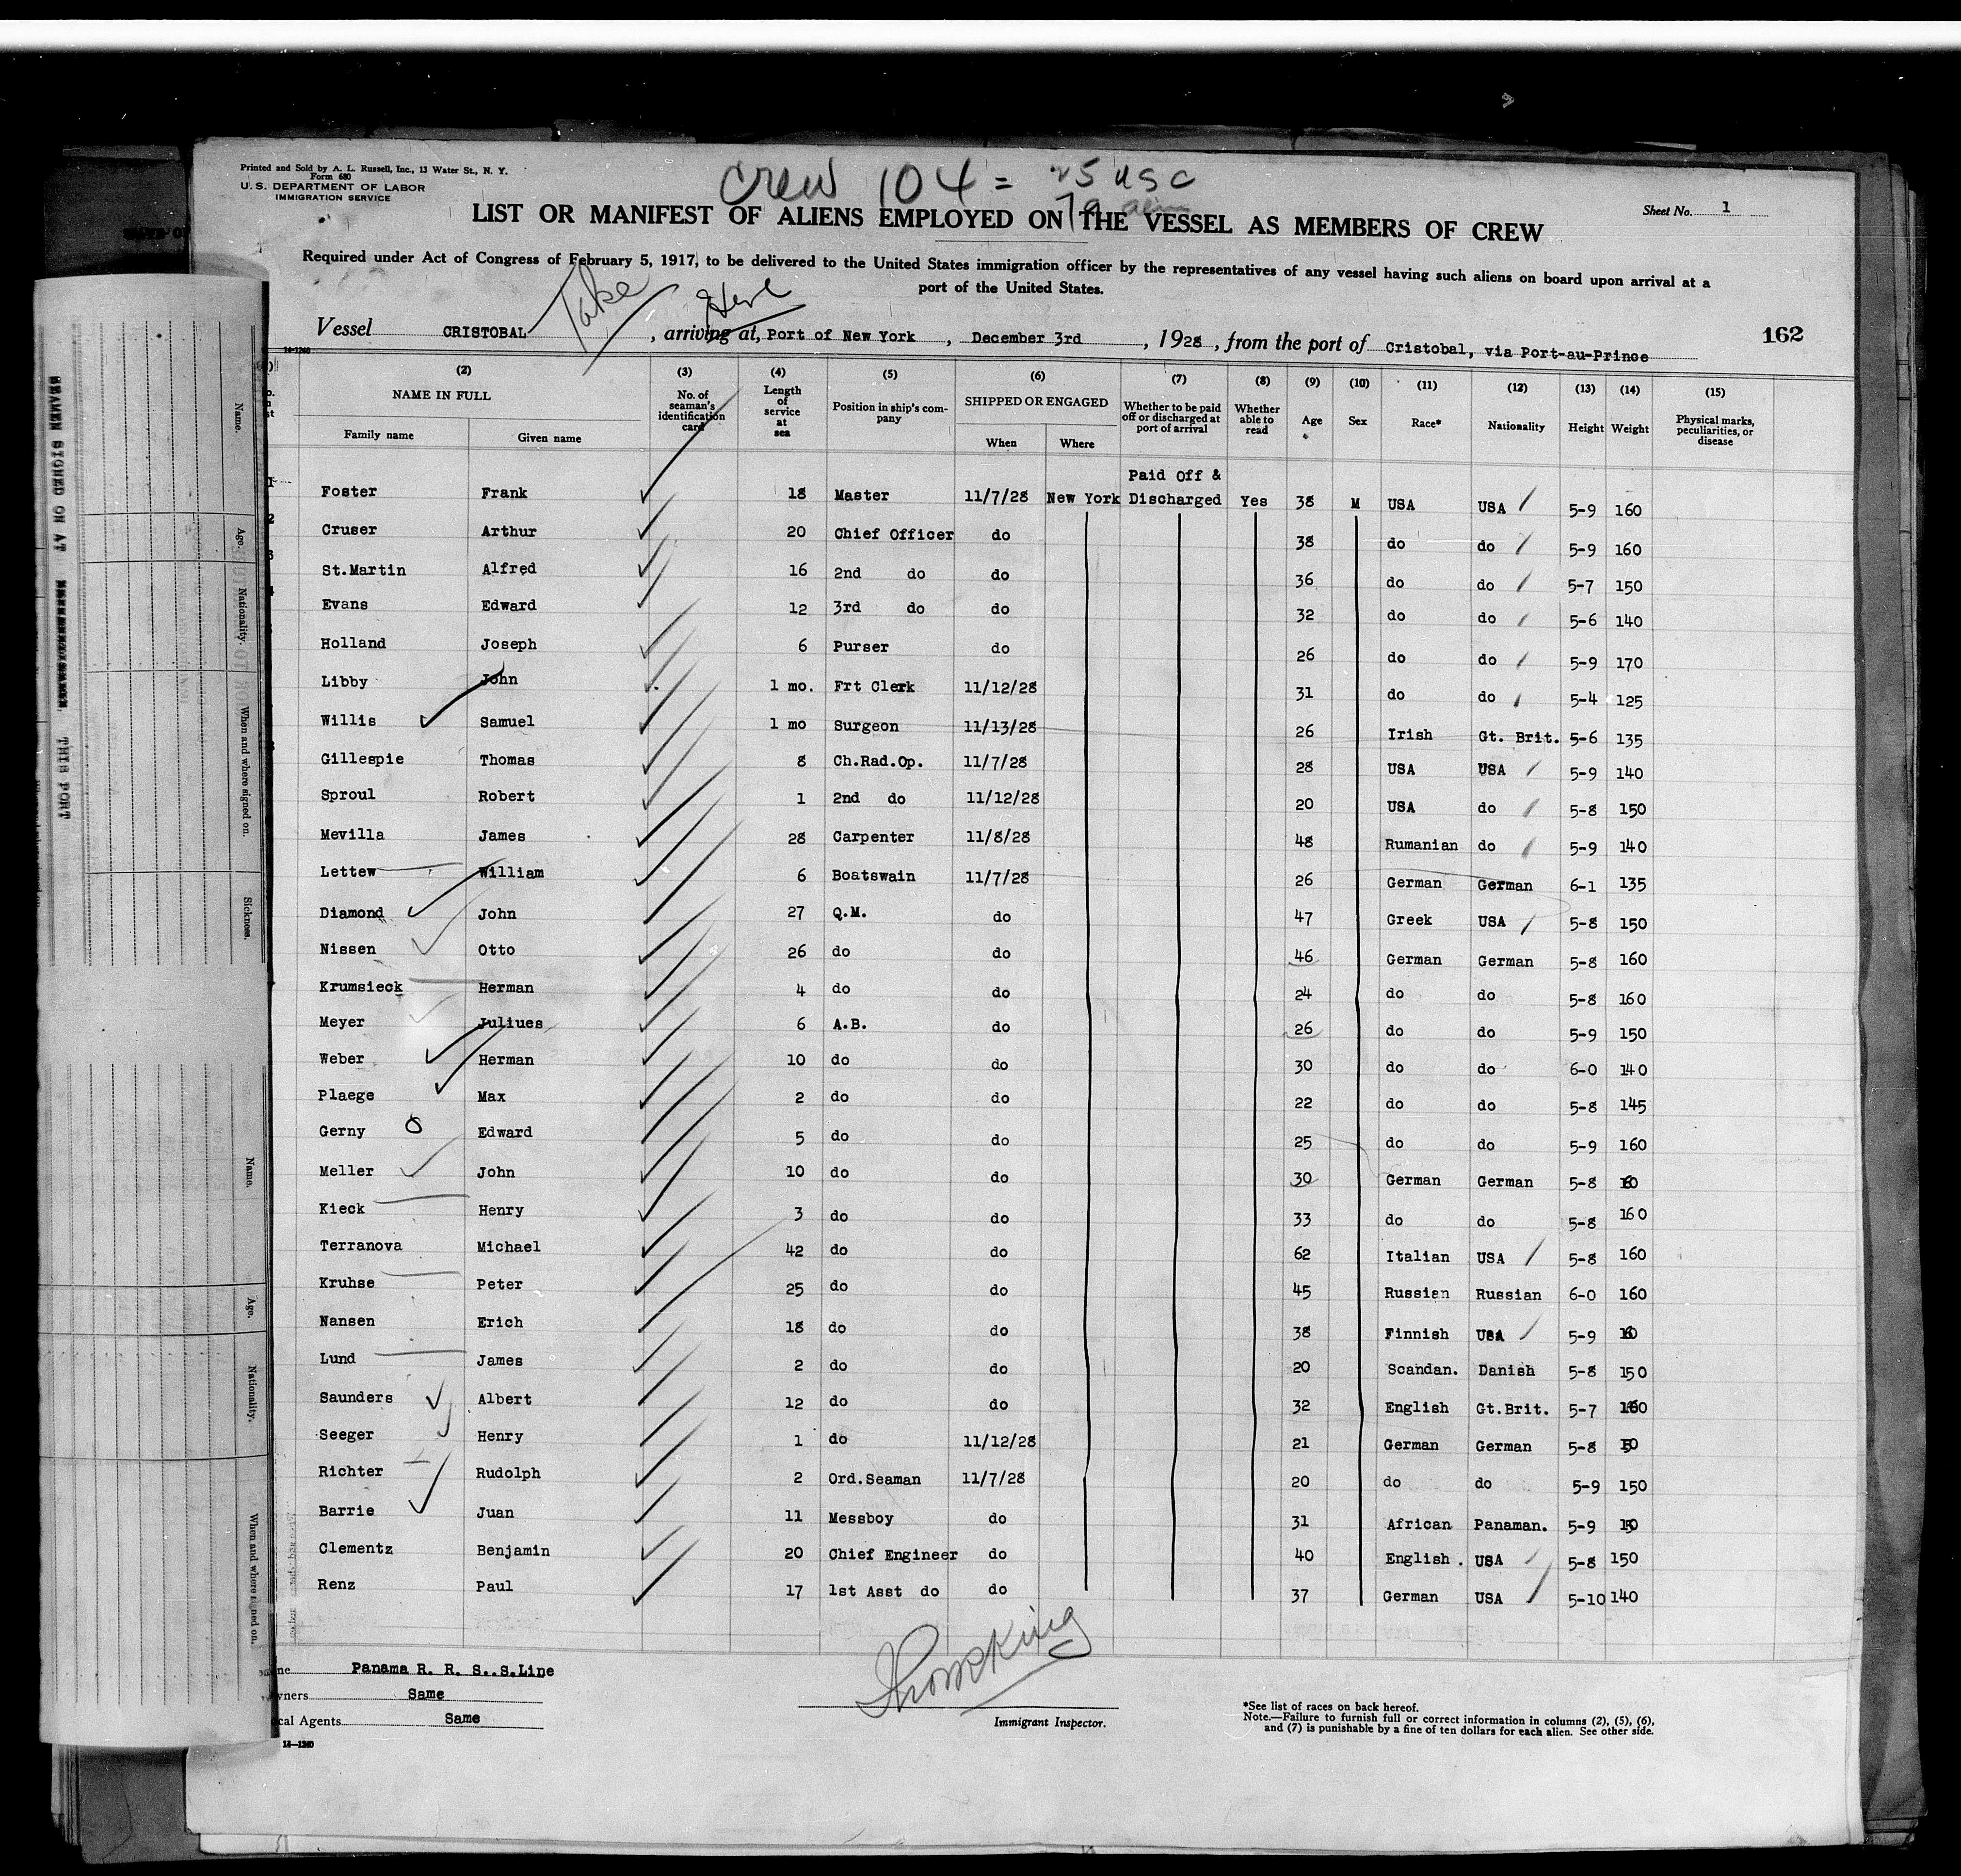 Printed and Sold by A. L. Russell, Inc., 13 Water St., N. Y.
Form 680
U. S. DEPARTMENT OF LABOR
IMMIGRATION SERVICE
Crew 104 = 25 USC
79 alien
Sheet No. 1
LIST OR MANIFEST OF ALIENS EMPLOYED ON THE VESSEL AS MEMBERS OF CREW
Required under Act of Congress of February 5, 1917, to be delivered to the United States immigration officer by the representatives of any vessel having such aliens on board upon arrival at a
port of the United States.
Take
Vessel CRISTOBAL, arriving at, Port of New York, December 3rd, 1928, from the port of Cristobal, via Port-au-Prince
162
14-1240
(2) (3) (4) (5) (6) (7) (8) (9) (10) (11) (12) (13) (14) (15)
NAME IN FULL No. of seaman's identification card Length of service at sea Position in ship's company SHIPPED OR ENGAGED Whether to be paid off or discharged at port of arrival Whether able to read Age Sex Race* Nationality Height Weight Physical marks, peculiarities, or disease
Family name Given name When Where
Paid Off &
Foster Frank 18 Master 11/7/28 New York Discharged Yes 38 M USA USA 5-9 160
Cruser Arthur 20 Chief Officer do 38 do do 5-9 160
St.Martin Alfred 16 2nd do do 36 do do 5-7 150
Evans Edward 12 3rd do do 32 do do 5-6 140
Holland Joseph 6 Purser do 26 do do 5-9 170
Libby John 1 mo. Frt Clerk 11/12/28 31 do do 5-4 125
Willis Samuel 1 mo Surgeon 11/13/28 26 Irish Gt. Brit. 5-6 135
Gillespie Thomas 8 Ch.Rad.Op. 11/7/28 28 USA USA 5-9 140
Sproul Robert 1 2nd do 11/12/28 20 USA do 5-8 150
Mevilla James 28 Carpenter 11/8/28 48 Rumanian do 5-9 140
Lettew William 6 Boatswain 11/7/28 26 German German 6-1 135
Diamond John 27 Q.M. do 47 Greek USA 5-8 150
Nissen Otto 26 do do 46 German German 5-8 160
Krumsieck Herman 4 do do 24 do do 5-8 160
Meyer Juliues 6 A.B. do 26 do do 5-9 150
Weber Herman 10 do do 30 do do 6-0 140
Plaege Max 2 do do 22 do do 5-8 145
Gerny Edward 5 do do 25 do do 5-9 160
Meller John 10 do do 30 German German 5-8
Kieck Henry 3 do do 33 do do 5-8 160
Terranova Michael 42 do do 62 Italian USA 5-8 160
Kruhse Peter 25 do do 45 Russian Russian 6-0 160
Nansen Erich 18 do do 38 Finnish USA 5-9
Lund James 2 do do 20 Scandan. Danish 5-8 150
Saunders Albert 12 do do 32 English Gt.Brit. 5-7
Seeger Henry 1 do 11/12/28 21 German German 5-8
Richter Rudolph 2 Ord.Seaman 11/7/28 20 do do 5-9 150
Barrie Juan 11 Messboy do 31 African Panaman. 5-9
Clementz Benjamin 20 Chief Engineer do 40 English. USA 5-8 150
Renz Paul 17 1st Asst do do 37 German USA 5-10 140
Panama R. R. S..S.Line
Same
cal Agents Same
14-1240
Immigrant Inspector.
*See list of races on back hereof.
Note.—Failure to furnish full or correct information in columns (2), (5), (6),
and (7) is punishable by a fine of ten dollars for each alien. See other side.
SEAMEN SIGNED ON AT
THIS PORT
Name.
Age.
Nationality.
When and where signed on.
Sickness.
Name.
Age.
Nationality.
When and where signed on.